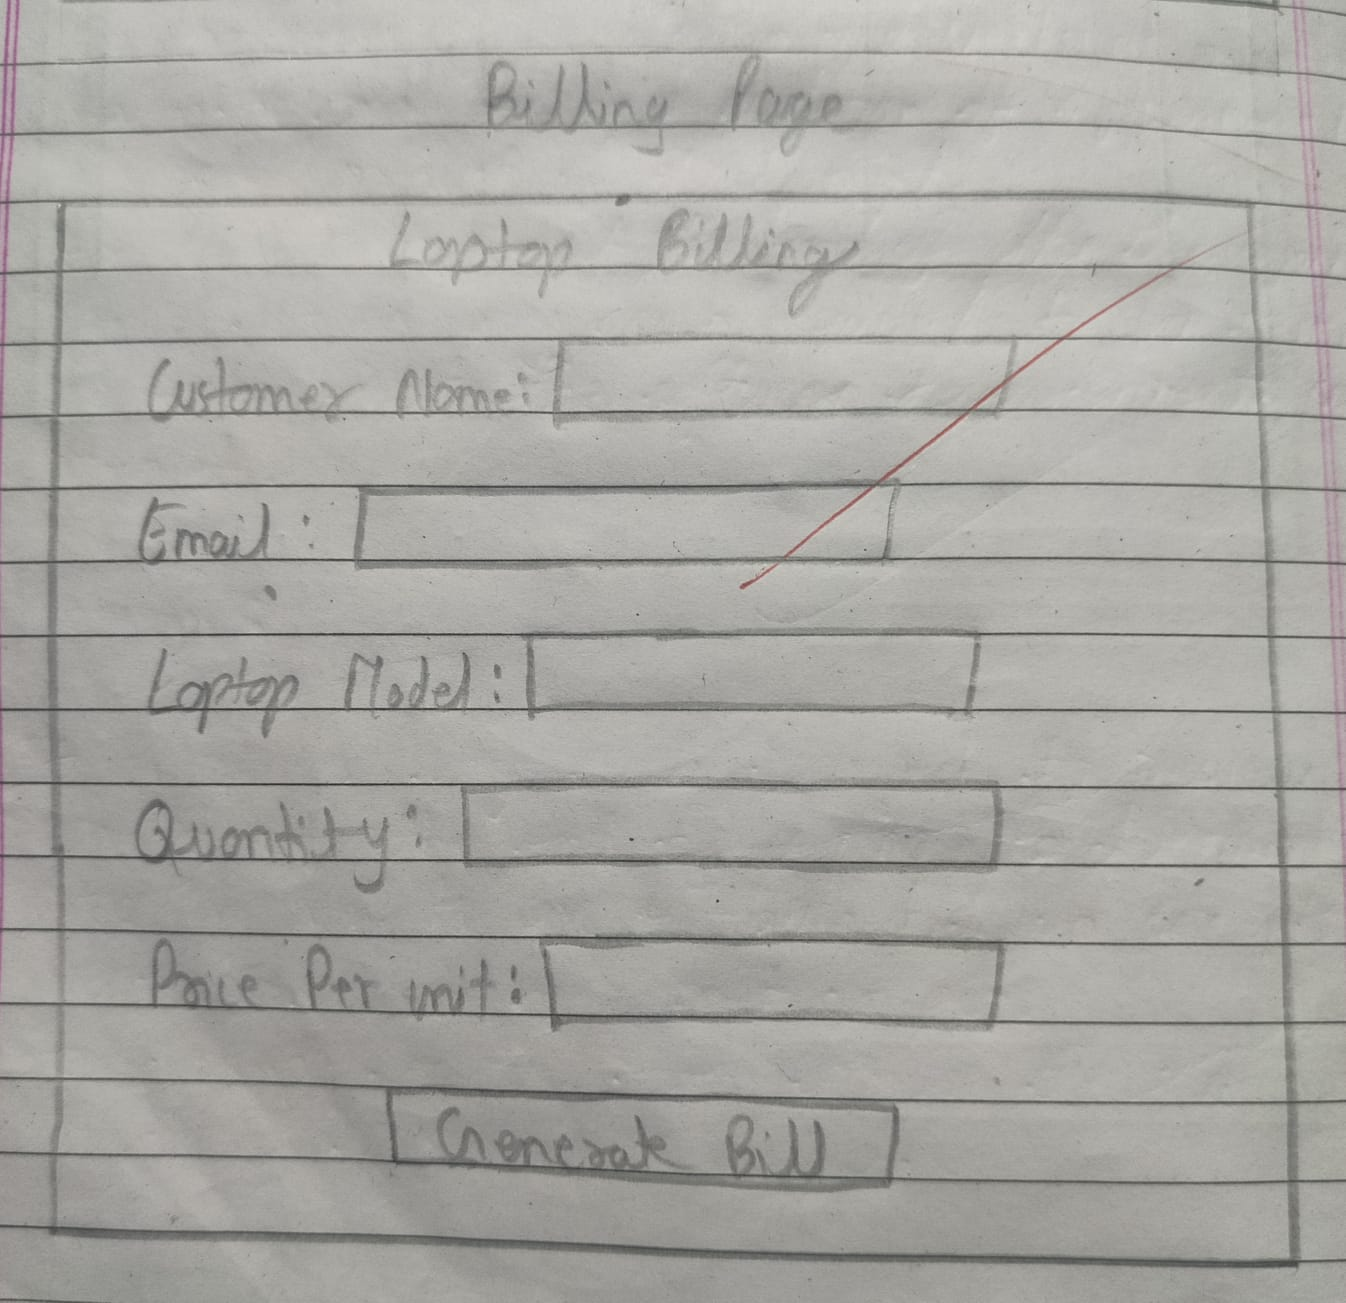 Billing Page
Laptop Billing
Customer Name:
Email :
Laptop Model :
Quantity :
Price Per unit :
Generate Bill